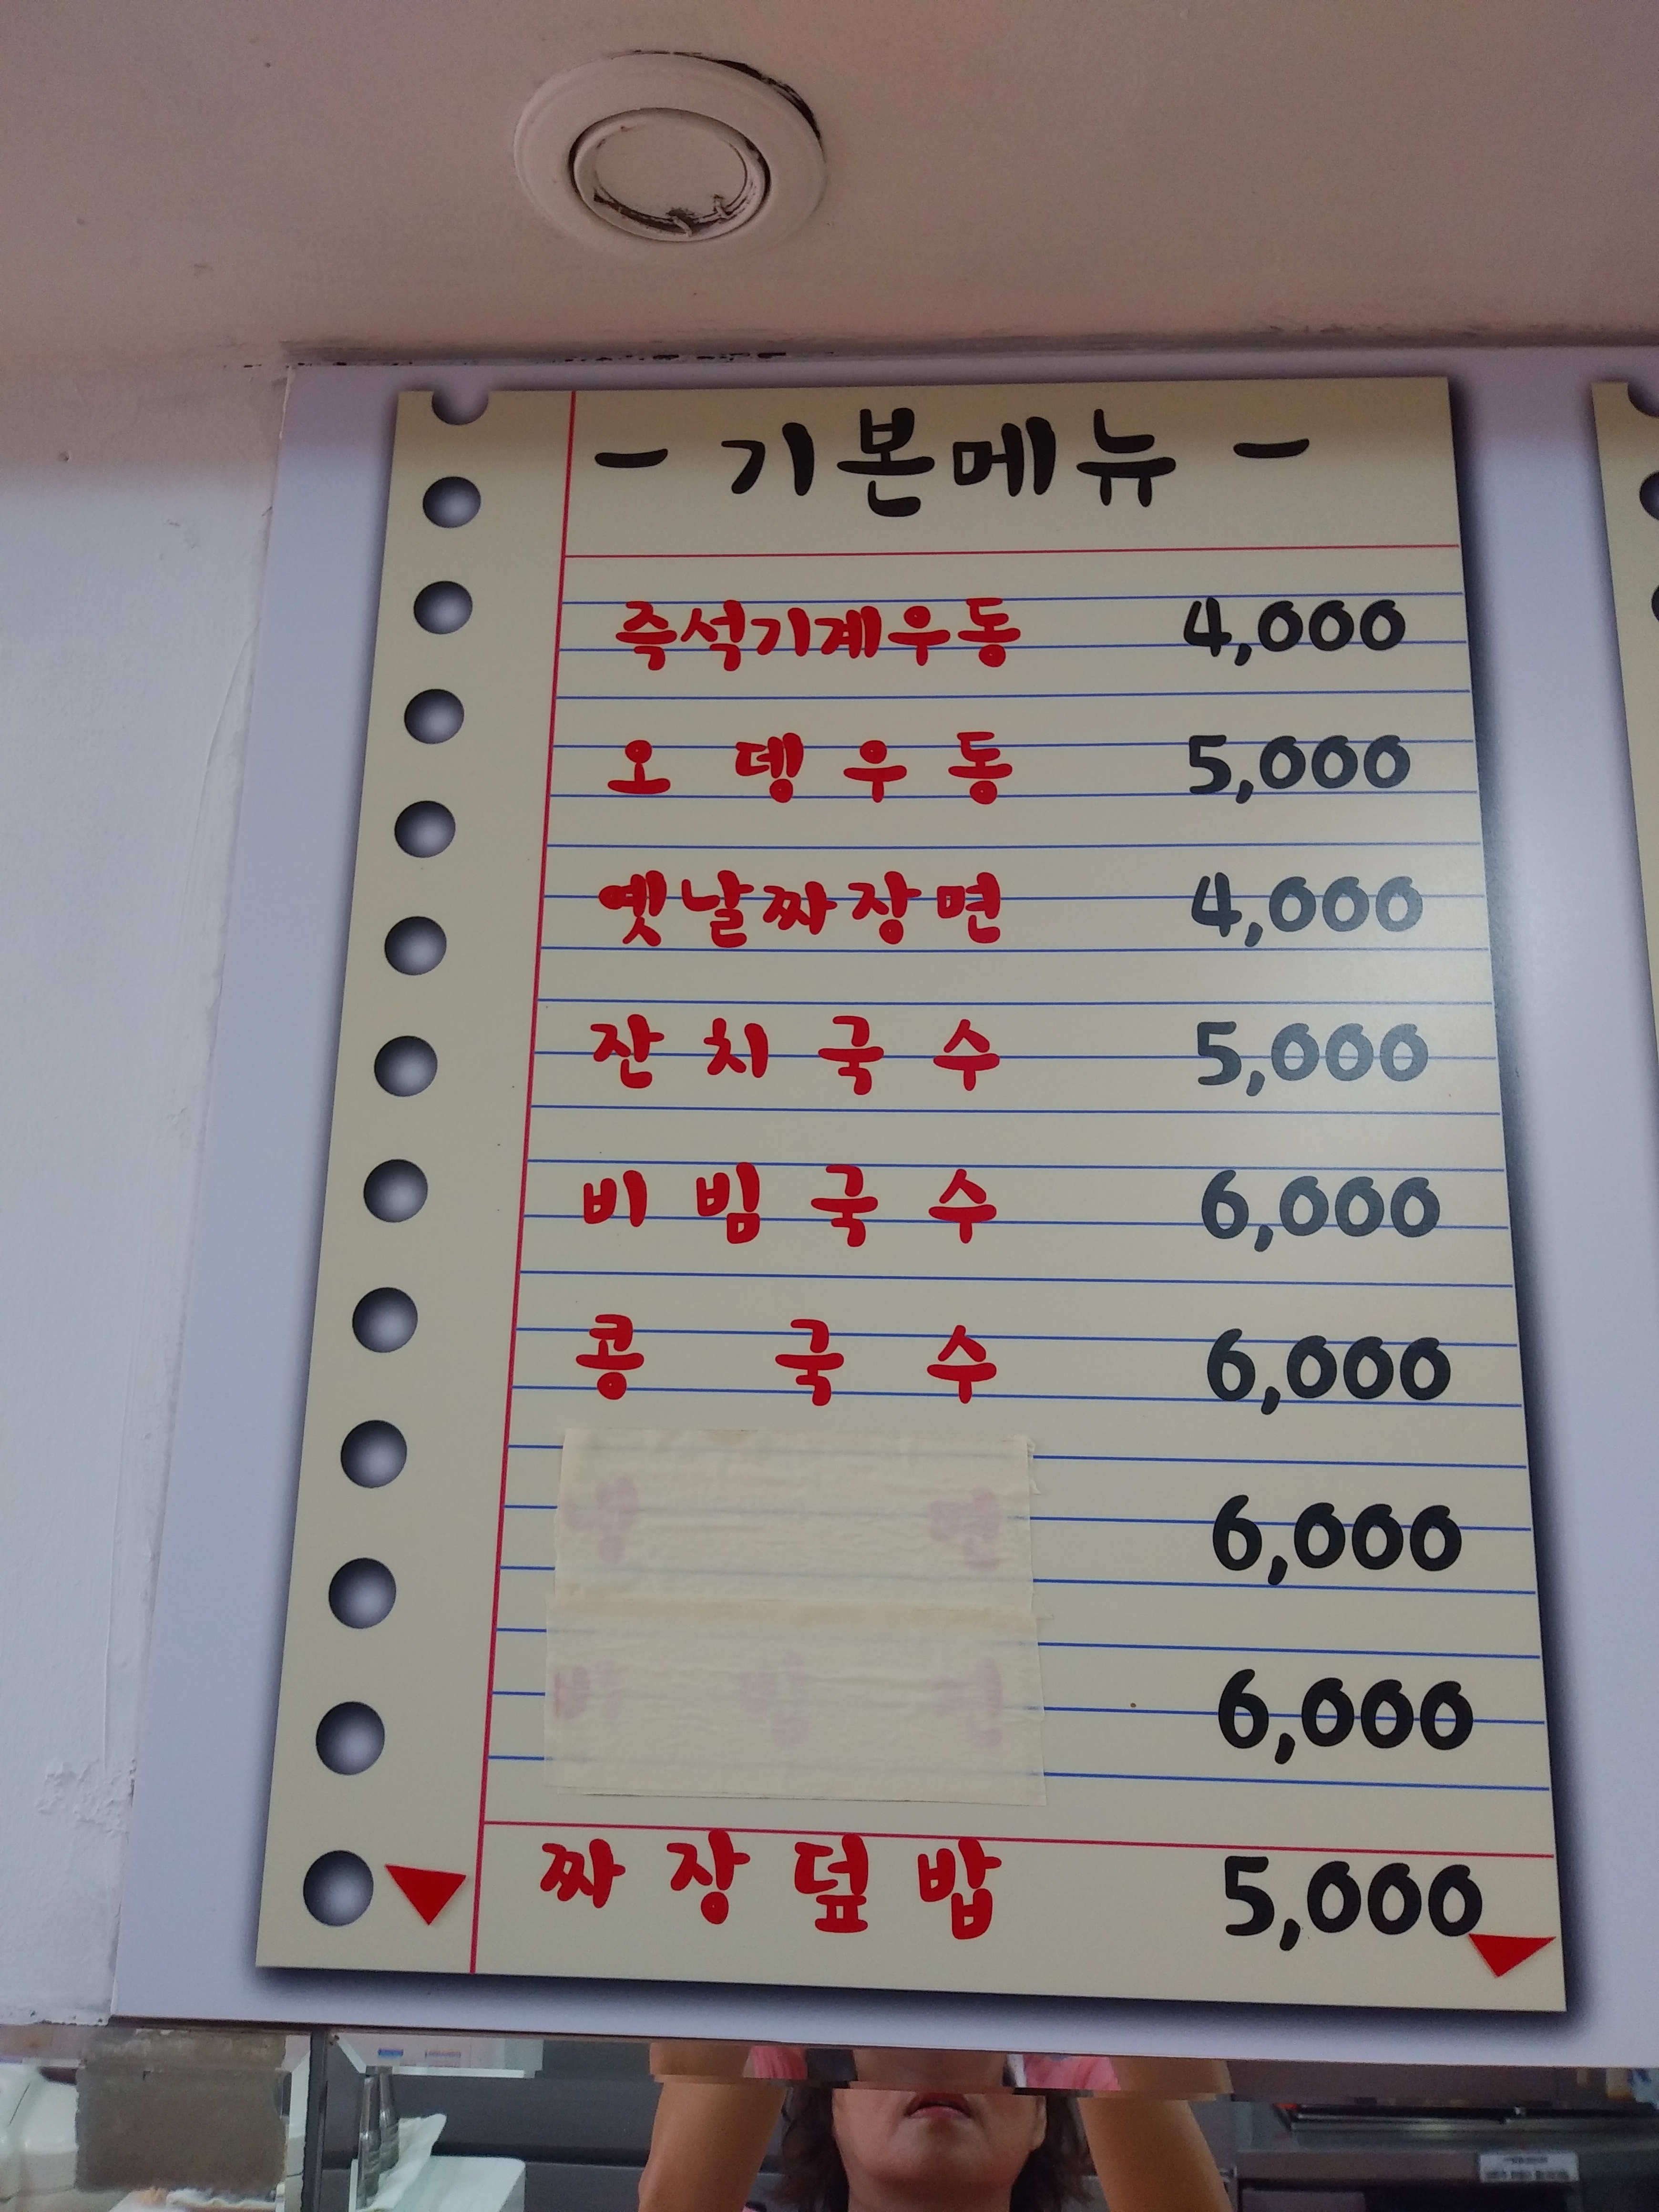 - 기본메뉴 -
즉석기계우동 4,000
오뎅우동 5,000
옛날짜장면 4,000
잔치국수 5,000
비빔국수 6,000
콩국수 6,000
6,000
6,000
짜장덮밥 5,000